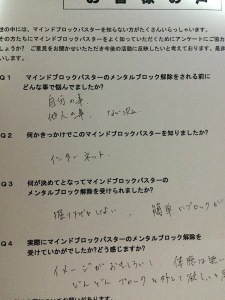 世の中には、マインドブロックバスターを知らない方がたくさんいらっしゃいます。
その方たちにマインドブロックバスターをよく知っていただくためにアンケートにご協力
しょうか？ ご意見をお聞かせいただき今後の活動に反映したいと考えております。是非
いします。
Q1 マインドブロックバスターのメンタルブロック解除をされる前に
どんな事で悩んでましたか？
自分の事、
他人の事、
Q2 何かきっかけでこのマインドブロックバスターを知りましたか？
インターネット
Q3 何が決めてとなってマインドブロックバスターの
メンタルブロック解除を受けられましたか？
掘り下げをしない、 簡単にブロックが
Q4 実際にマインドブロックバスターのメンタルブロック解除を
受けていかがでしたか？どう感じますか？
イメージがおもしろい！
どんどんブロックを外して欲しいと